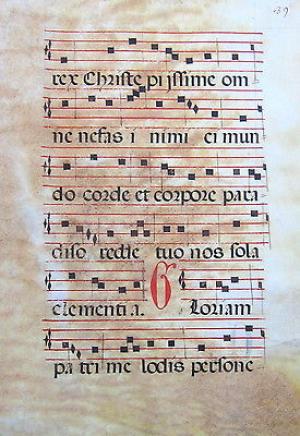 39
rex Christe piissime om
ne nefas i nimi ci mun
do corde et corpore para
diso redde tuo nos sola
clementi a. Gloriam
pa tri me lodis persone